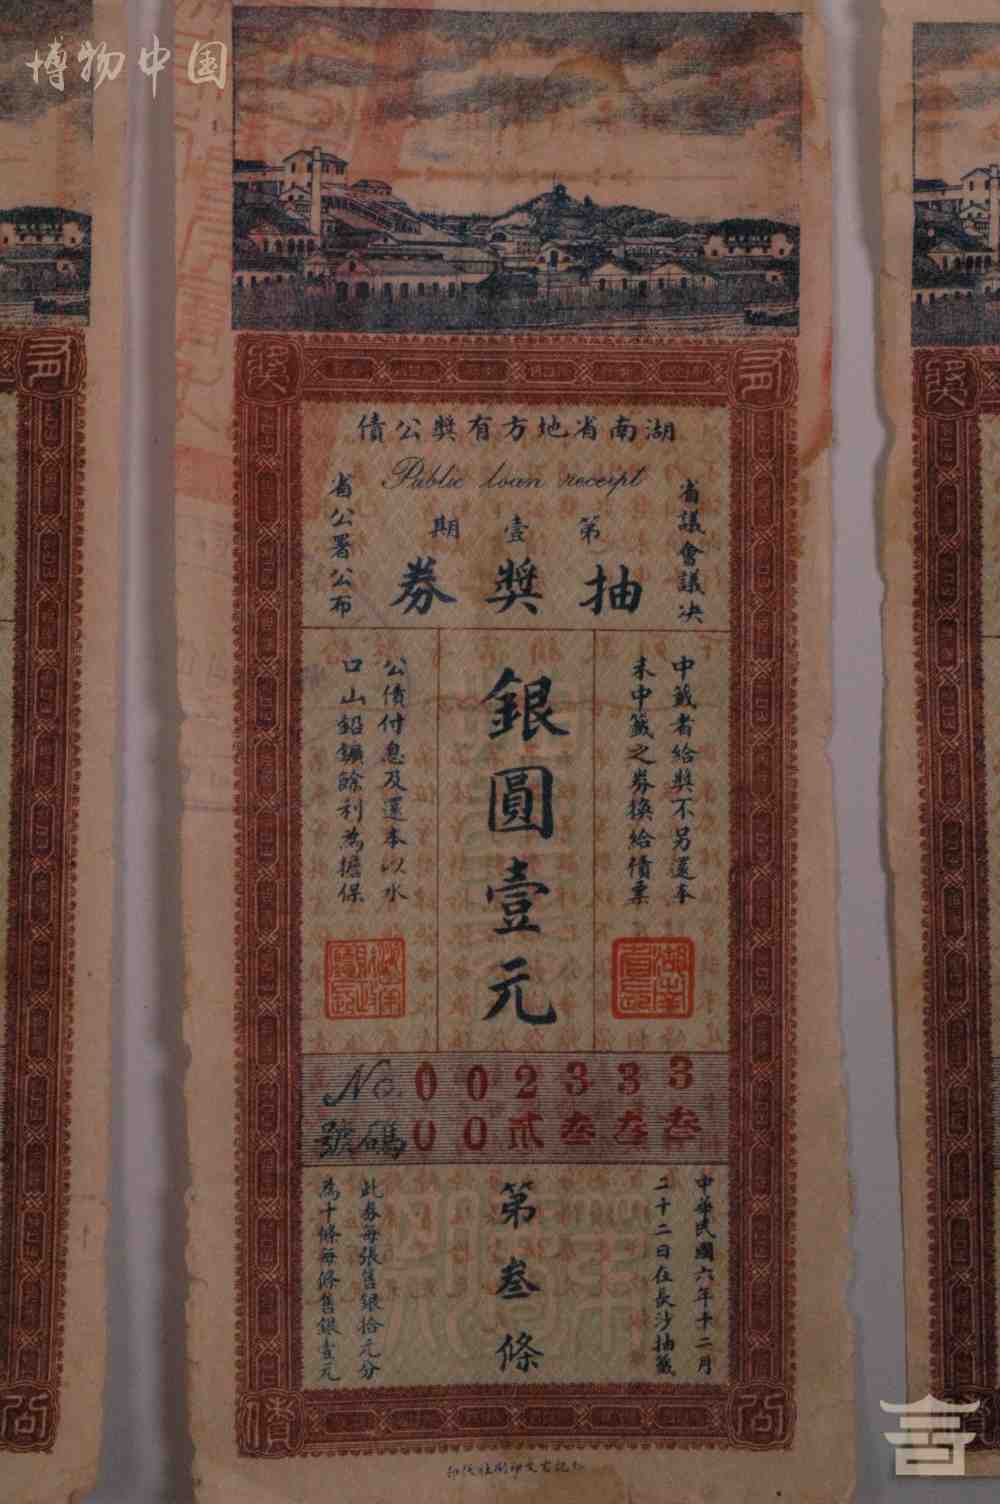 博物中国
湖南省地方有獎公債
Public loan receipt
省議會議决
第壹期
抽獎券
省公署公布
中籤者給獎不另還本
未中籤之券換給債票
銀圓壹元
公債付息及還本以水
口山鉛鑛餘利為擔保
湖南省長
No. 002333
號碼 00貳叁叁叁
中華民國六年十二月
二十二日在長沙抽籤
第叁條
此券每張售銀拾元分
為十條每條售銀壹元
有
獎
公
債